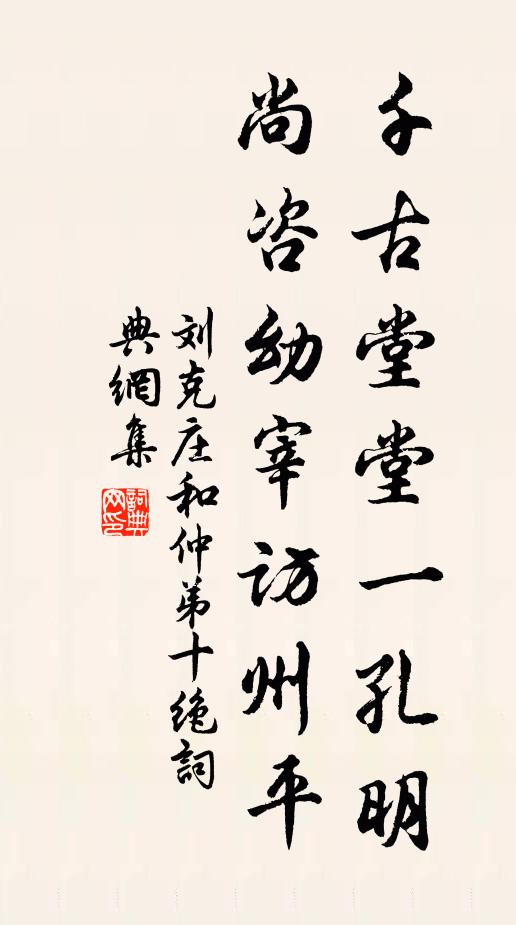 千古堂堂一孔明
尚咨幼宰访州平
刘克庄和仲弟十绝詞
典網集
詞典网印